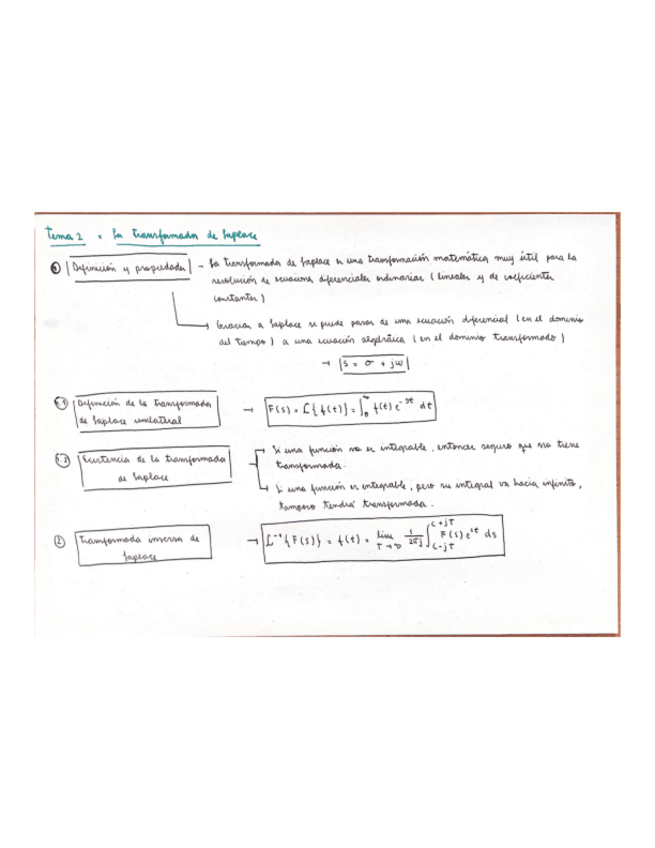 Tema 2 : La transformada de Laplace
① Definición y propiedades - La transformada de Laplace es una transformación matemática muy útil para la
resolución de ecuaciones diferenciales ordinarias (lineales y de coeficientes
constantes)
Gracias a Laplace se puede pasar de una ecuación diferencial (en el dominio
del tiempo) a una ecuación algebraica (en el dominio transformado)
→ s = σ + jω
1.1 Definición de la transformada
de Laplace unilateral
→ F(s) = ℒ{f(t)} = ∫₀^∞ f(t) e^{-st} dt
1.2 Existencia de la transformada
de Laplace
→ Si una función no es integrable, entonces seguro que no tiene
transformada.
→ Si una función es integrable, pero su integral va hacia infinito,
tampoco tendrá transformada.
② Transformada inversa de
Laplace
→ ℒ⁻¹{F(s)} = f(t) = lim_{T→∞} 1/2πj ∫_{c-jT}^{c+jT} F(s) e^{st} ds